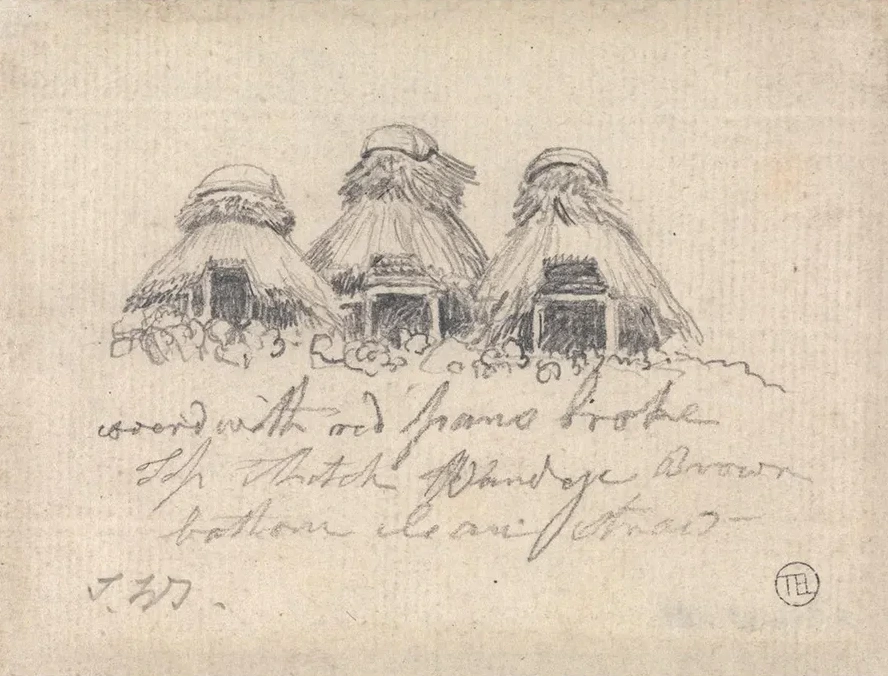 coverd with red pans broke
Top Thatch Vandyc Brown
bottom clean Straw
TEL